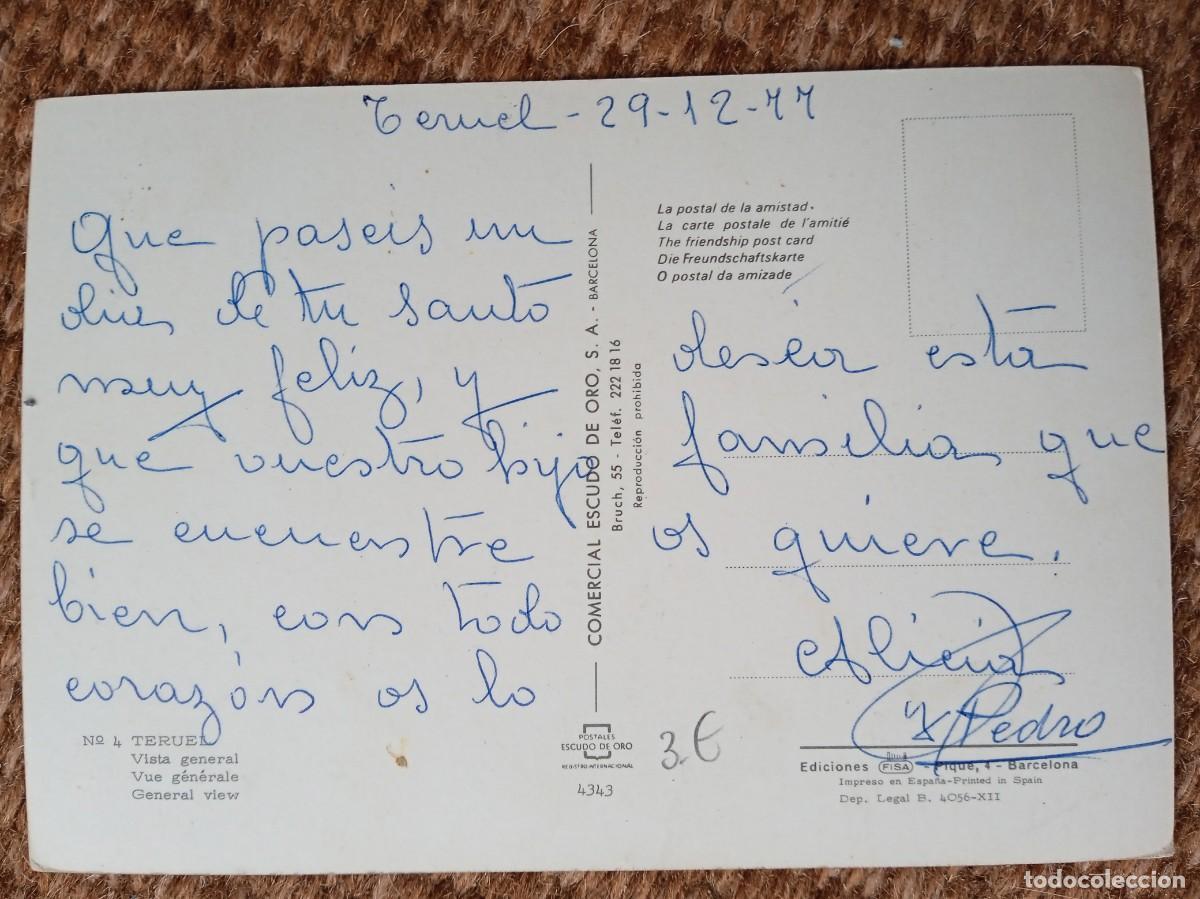 Teruel - 29-12-77
Que paseis un
dia de tu santo
muy feliz, y
que vuestro hijo
se encuentre
bien, con todo
corazón os lo
deséa esta
familia que
os quiere.
Alicia
y Pedro
La postal de la amistad.
La carte postale de l'amitié
The friendship post card
Die Freundschaftskarte
O postal da amizade
COMERCIAL ESCUDO DE ORO, S. A. - BARCELONA
Bruch, 55 - Teléf. 222 18 16
Reproducción prohibida
Nº 4 TERUEL
Vista general
Vue générale
General view
POSTALES
ESCUDO DE ORO
REGISTRO INTERNACIONAL
4343
3.€
Ediciones FISA - Piqué, 4 - Barcelona
Impreso en España-Printed in Spain
Dep. Legal B. 4056-XII
todocoleccion